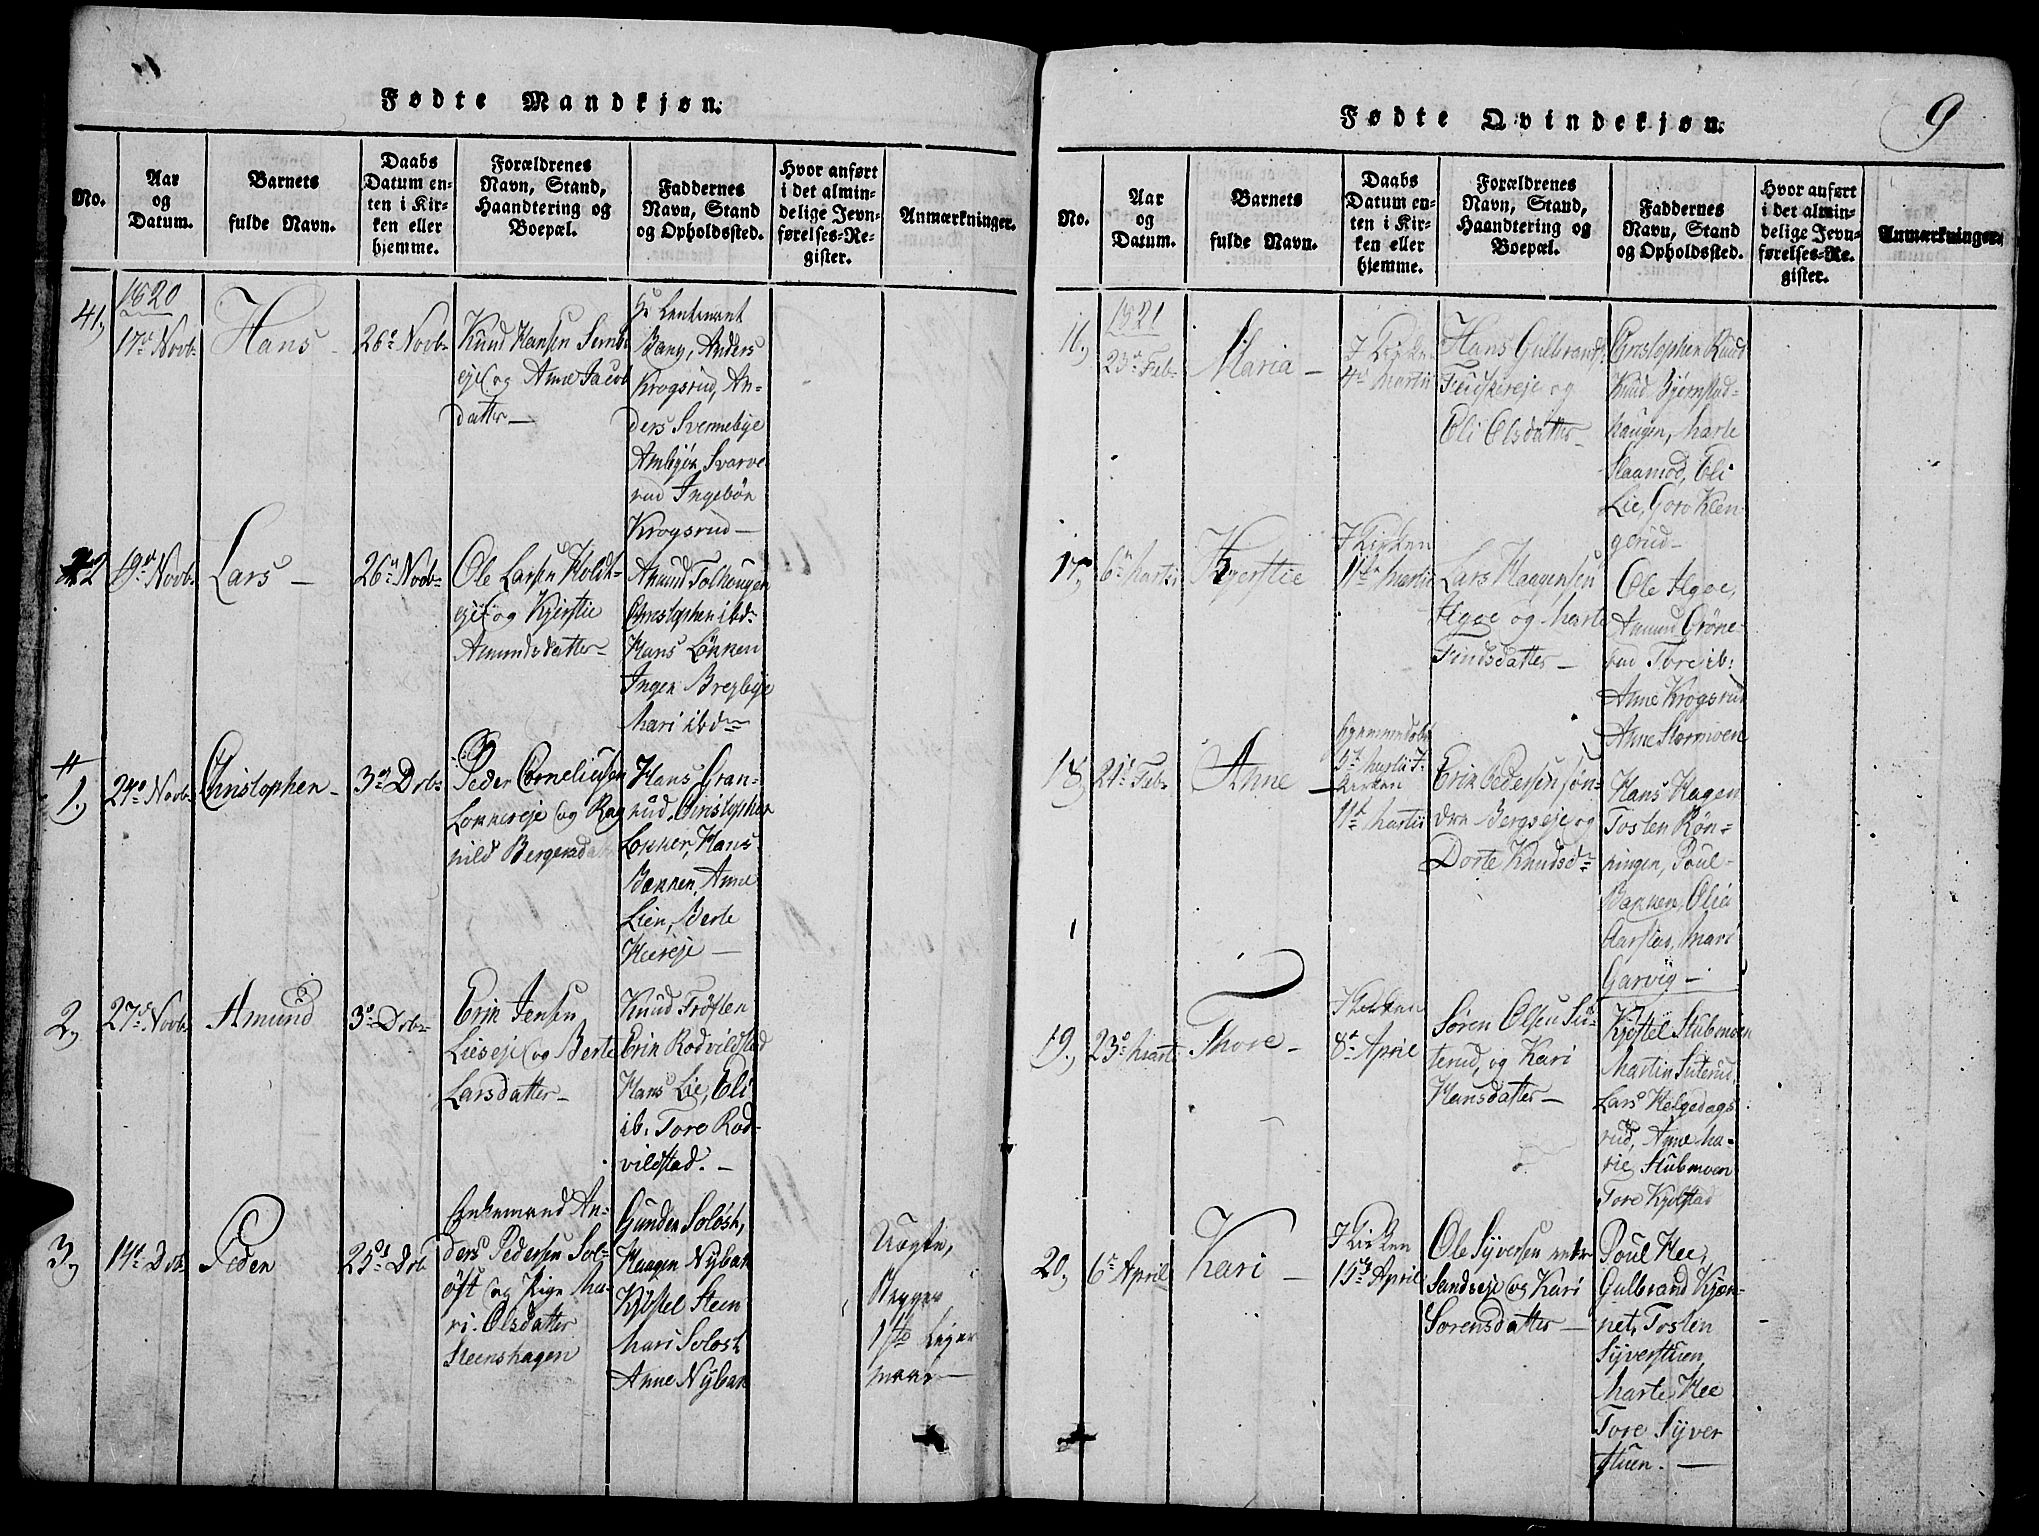 Fødte Mandkjøn.
No.
Aar
og
Datum.
Barnets
fulde Navn.
Daabs
Datum en-
ten i Kir-
ken eller
hjemme.
Forældrenes
Navn, Stand,
Haandtering og
Boepæl.
Faddernes
Navn, Stand
og Opholdssted.
Hvor anført
i det almin-
delige Jevn-
førelses-Re-
gister.
Anmærkninger.
41,
1820
17de Novb.
Hans
26de Novb.
Knud Hansen
eje og Anne Jacob
datter
Leutenant
Bang, Anders
Krogsrud, An-
ders Svennebye
Svarve
rud Ingebör
Krogsrud
42
19de Novb.
Lars
26de Novb.
Ole Larsen
eje og Kjerstie
Amundsdatter
Amund Tolhougen
Christopher ibd.
Hans Lökken
Inger Bregbye
Mari ibd.
1,
24de Novb.
Christopher
3de Dcb.
Peder Corneliusen
Lokkereje og Rag
nild
Hans Gran-
rud, Christopher
Lokker, Hans
Bakken, Anne
Lien, Berte
Heereje
2,
27de Novb.
Amund
3de Dcb.
Erik Jensen
Lieseje og Berte
Larsdatter
Knud Fröslen
Erik Rodvildstad
Hans Lie, Eli
ib. Tore Rod-
vildstad.
3,
14de Dcb.
Peder
25de Dcb
Enkemand An-
ders Pedersen Sol-
öst og Pige Ma-
ri Olsdatter
Steenshagen
Gunder Solöst,
Haagen Nÿbak
Kjöstel Steen
Mari Solöst
Anne Nÿbak
Uægte,
Begges
1ste Leger
maal
9
Fødte Qvindekjøn.
No.
Aar
og
Datum.
Barnets
fulde Navn.
Daabs
Datum en-
ten i Kir-
ken eller
hjemme.
Forældrenes
Navn, Stand,
Haandtering og
Boepæl.
Faddernes
Navn, Stand
og Opholdssted.
Hvor anført
i det almin-
delige Jevn-
førelses-Re-
gister.
Anmærkninger.
16,
1821
23de Feb.
Maria
I Kirken
4de Martii
Hans Gulbrands.
og
Eli Olsdatter
Christopher Ruud
Knud Bjørnstad-
haugen, Marte
Slaamod, Eli
Lie, Goro Klen-
gerud
17,
6te Martii
Kjerstie
I Kirken
11te Martii
Lars Haagensen
og Marte
Findsdatter
Ole
Amund Gröne-
rud Tore ib:
Anne Krogsrud
Anne Stormoen
18,
21de Feb.
Anne
hjemmedöbt
5te Martii I
Kirken
11te Martii
Erik Pedersen Sön-
dre Bergseje og
Dorte Knudsd.
Hans Hagen
Tosten Rön-
ningen, Poul
Bakken, Olia
Aarstad, Mari
Garvig
19,
23de Marti
Thore
I Kirken
8de April
Sören Olsen Su-
terud, og Kari
Hansdatter
Kjöstel Stubmoen
Martin Suterud,
Lars Helgedags
rud, Anne Ma-
rie Stubmoen
Tore Kjølstad
20,
6te April
Kari
I Kirken
15de April
Ole Sÿversen
Sandseje og Kari
Sorensdatter
Poul Hee,
Gulbrand Kjøn-
net, Tosten
Sÿverstuen
Marte Hee
Tore Sÿver
stuen.